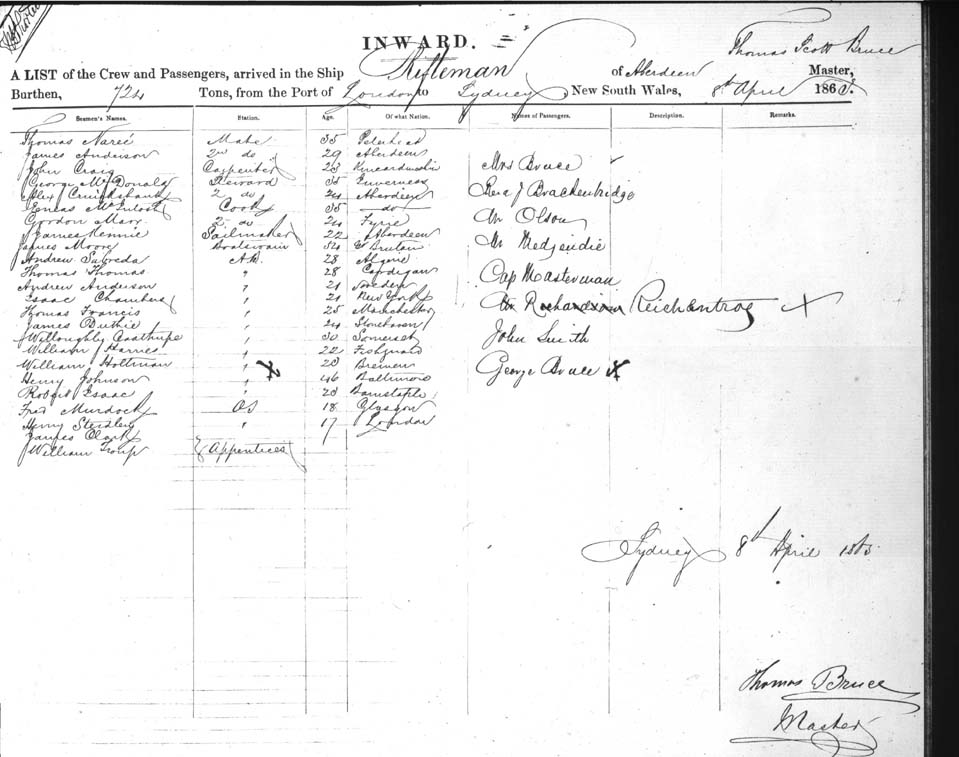 INWARD.
A LIST of the Crew and Passengers, arrived in the Ship Rifleman of Aberdeen Thomas Scott Bruce Master,
Burthen, 724 Tons, from the Port of London to Sydney, New South Wales, 8th April 1863.
Seamen's Names. Station. Age. Of what Nation. Names of Passengers. Description. Remarks.
Thomas Mate 35 Peterhead
James Anderson 2nd do 29 Aberdeen
John Craig Carpenter 23 Kincardinshire Mrs Bruce
George McDonald Steward 35 Inverness
Alex Cruikshank 2 do 24 Aberdeen J Brackenridge
McIntosh Cook 35 do
Gordon Marr 2 do 24 Fyvie Mr Olson
James Rennie Sailmaker 22 Aberdeen
James Moore Boatswain 54 Mr
Andrew AB 28 Algiers
Thomas Thomas " 28 Cardigan Cap Masterman
Andrew Anderson " 21 Sweden
Isaac Chambers " 21 New York Reichantrog
Thomas Francis " 25 Manchester
James Duthie " 24 Stonehaven John Smith
Willoughby " 30 Somerset
William Harries " 22 Fishguard
William Holtman " 23 Bremen George Bruce
Henry Johnson " 46 Baltimore
Robert Isaac 23 Barnstaple
Fred Murdock OS 18 Glasgow
Henry " 17 London
James Clark
William Troup Apprentices
Sydney 8th April 1863
Thomas Bruce
Master